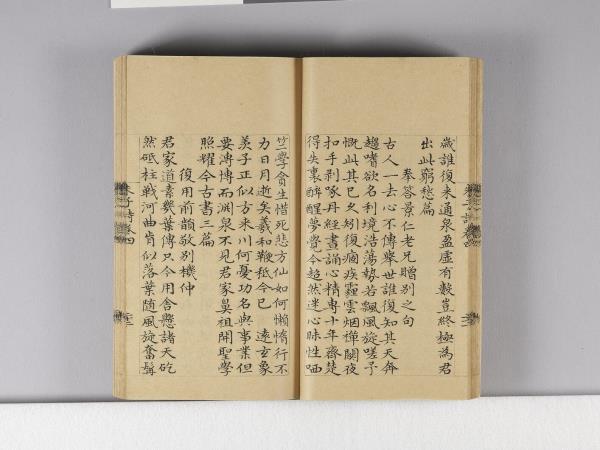 歲誰復来通泉盈虛有數豈終極為君
出此窮愁篇
奉答景仁老兄贈别之句
古人一去心不傳舉世誰復知其天奔
趨嗜欲名利境浩蕩勢若飄風旋嗟予
慨此其已久矧復痼疾霾雲烟禅關夜
扣手剥啄丹經晝誦心精專十年齋楚
得失裏醉醒夢覺今超然迷心昧性哂
竺學貪生惜死悲方仙如何懶惰行不
力日月逝矣羲和鞭祗今已 遠玄象
羨子正似方来川何憂功名與事業但
要溥博而淵泉不見君家鼻祖開聖學
照耀今古書三篇
復用前韻敬别機仲
君家道素幾葉傳只今用舍懸諸天屹
然砥柱戰河曲肯似落葉随風旋奮髯